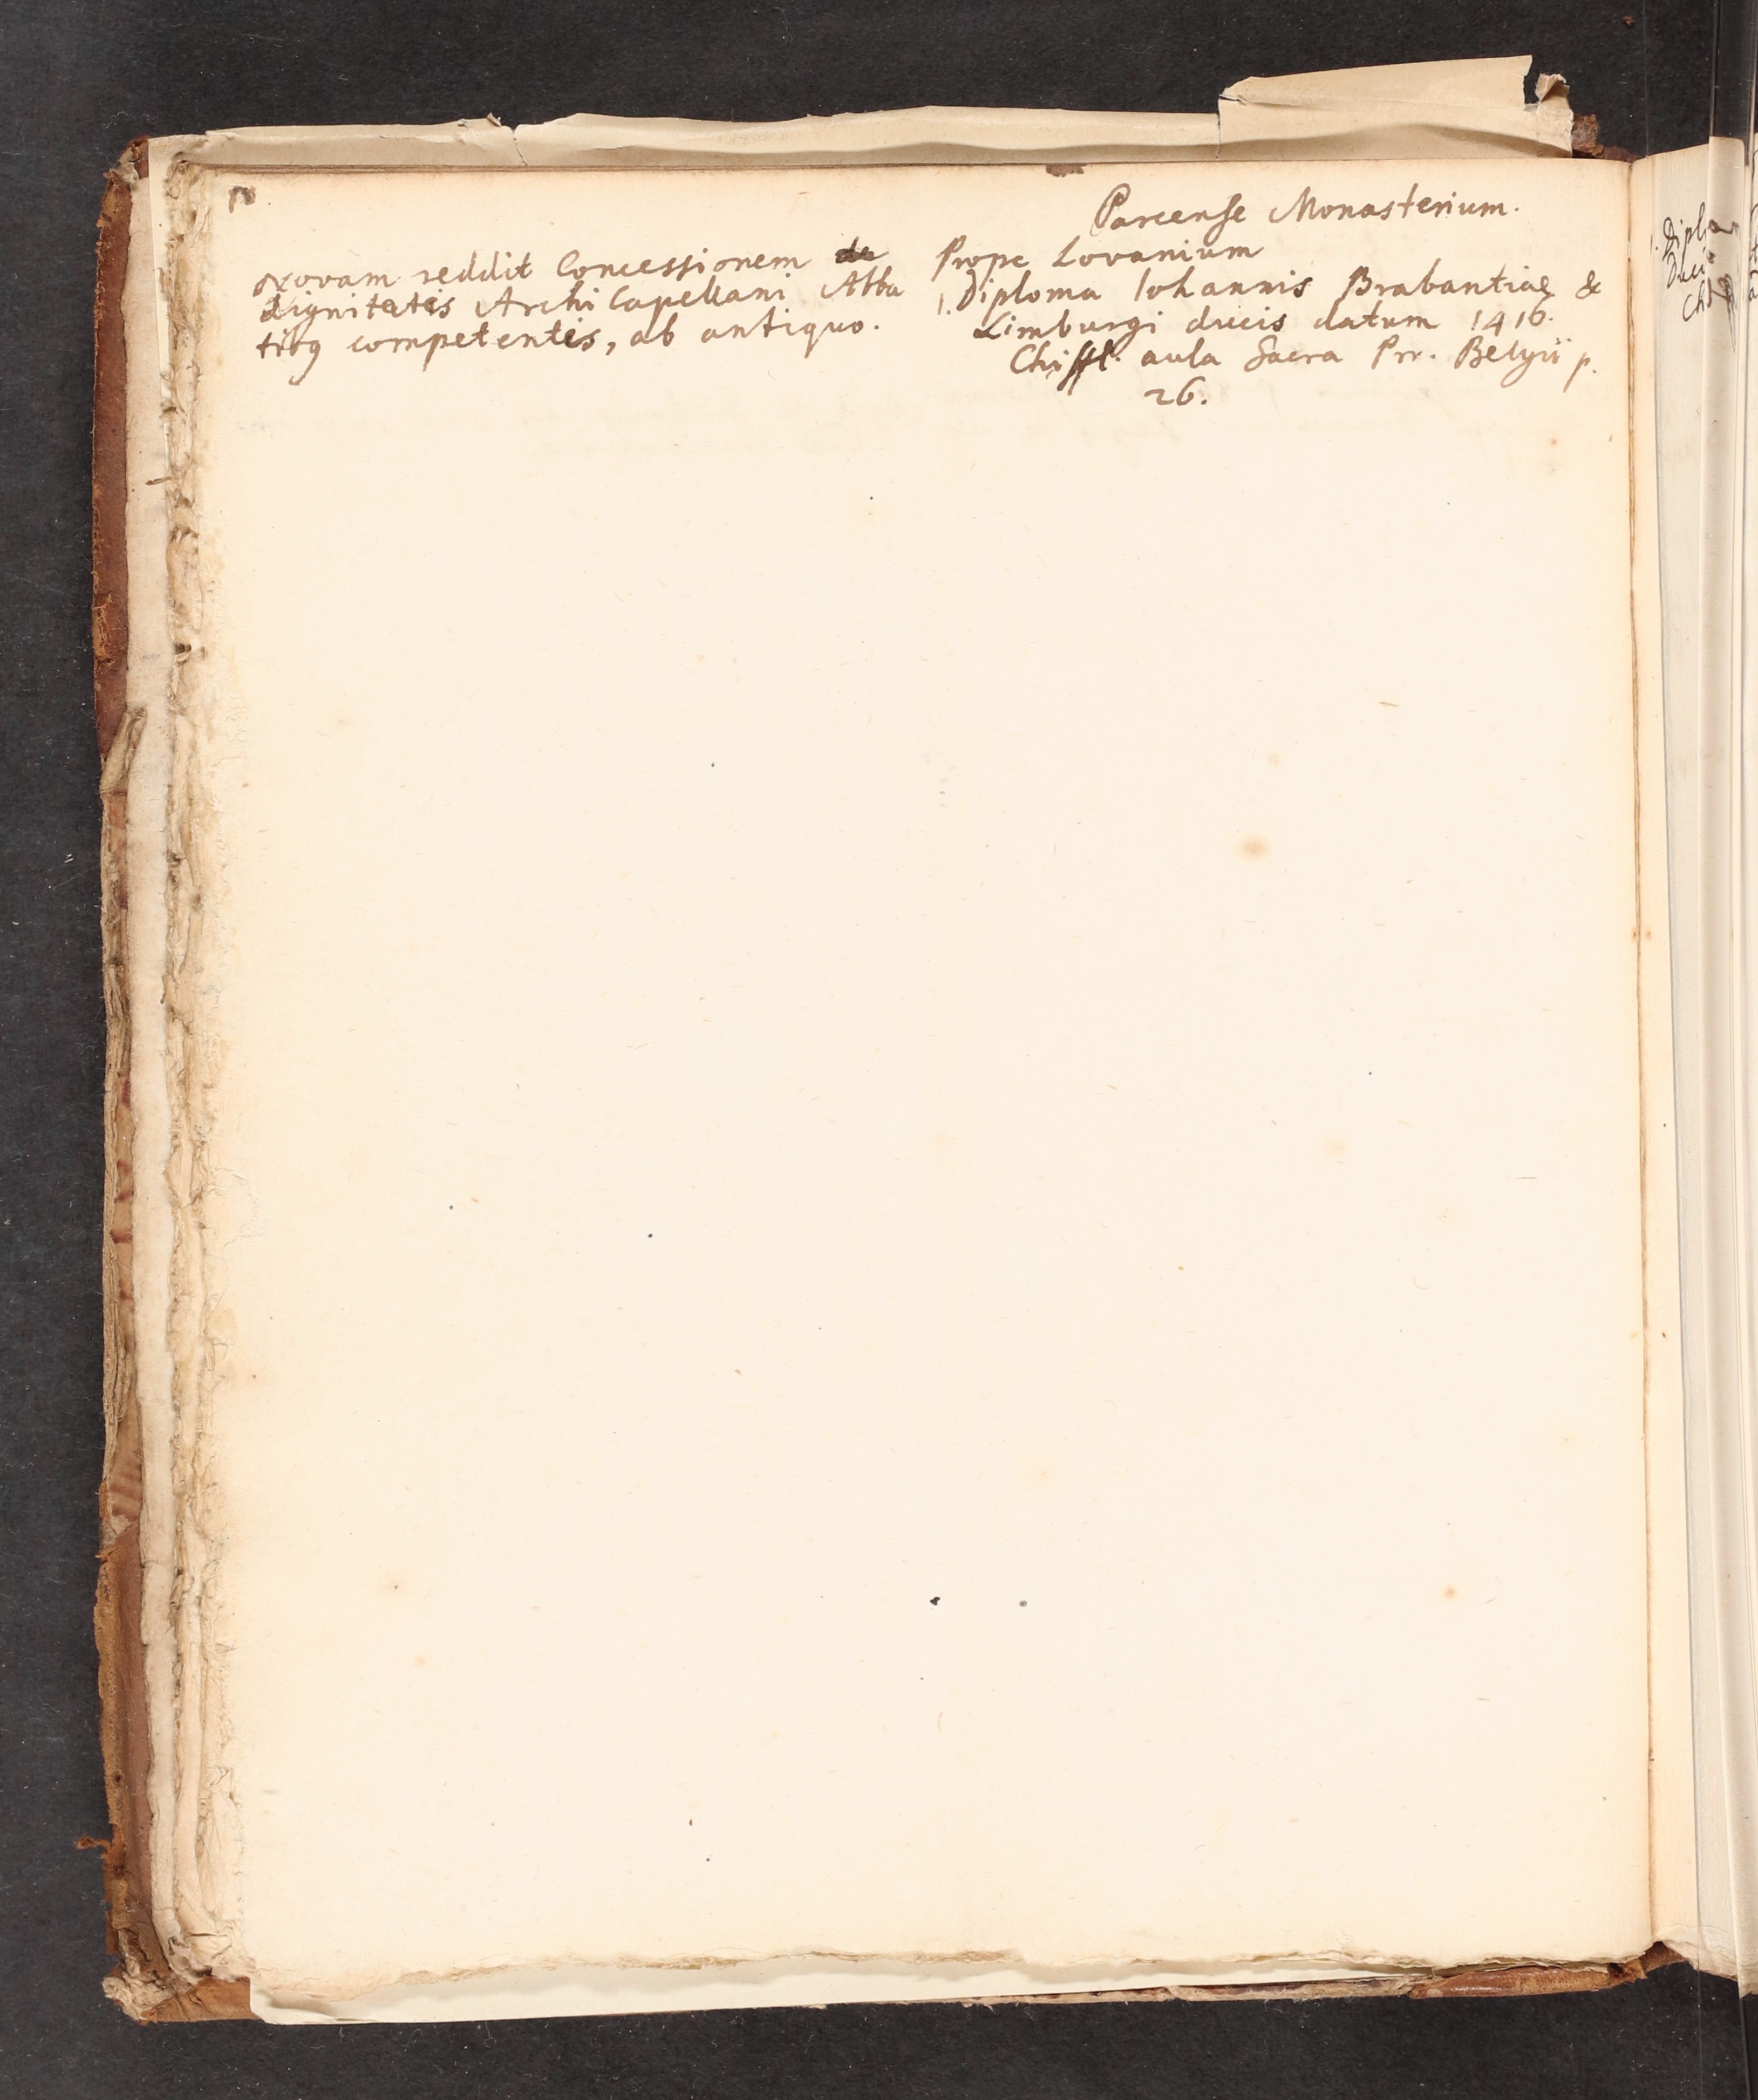 Parcense Monasterium.
Novam reddit Concessionem de
dignitatis ArchiCapellani Abba
tibg competentis, ab antiquo.
Prope Lovanium
1. Diploma Iohannis Brabantiae &
Limburgi ducis datum 1416.
Chiffl. aula Sacra Prr. Belgii p.
26.